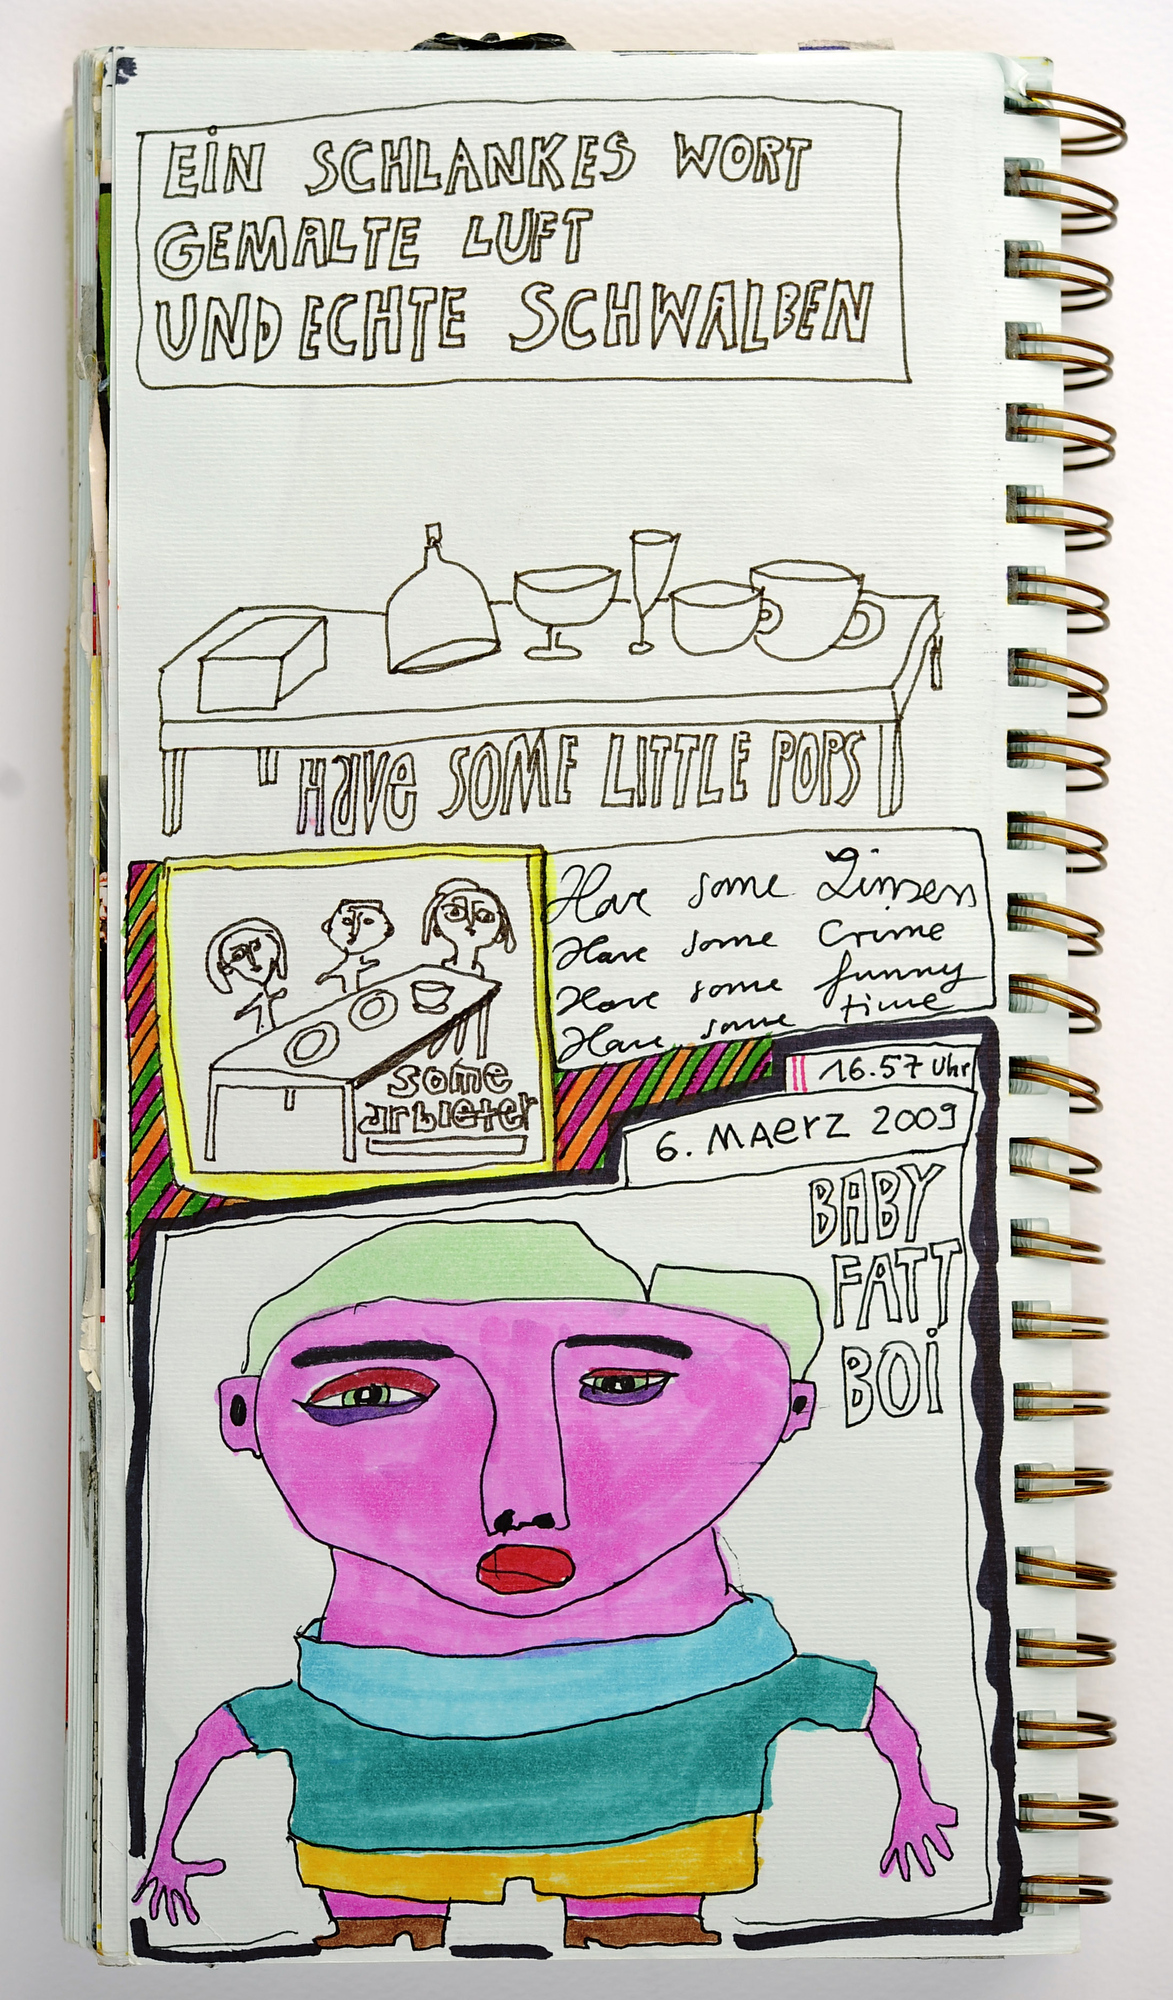 EIN SCHLANKES WORT
GEMALTE LUFT
UND ECHTE SCHWALBEN
HAVE SOME LITTLE POPS
Have some Linsen
Have some Crime
Have some funny
Have some time
some
arbieter
16.57 Uhr
6. MAERZ 2009
BABY
FATT
BOI